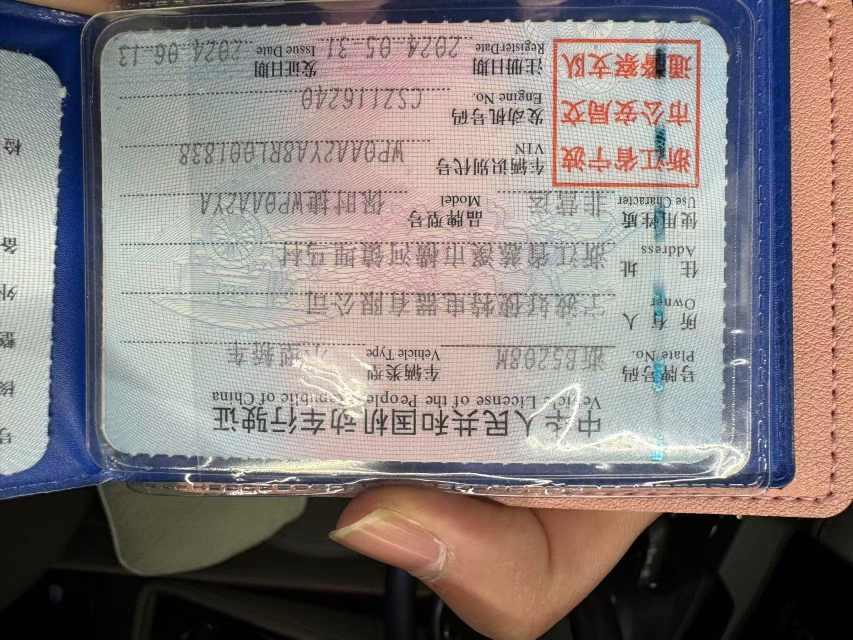 中华人民共和国机动车行驶证
Vehicle License of the People's Republic of China
号牌号码 Plate No. 浙B5208M 车辆类型 Vehicle Type 小型轿车
所有人 Owner 宁波好便特电器有限公司
住址 Address 浙江省慈溪市横河镇埋马村
使用性质 Use Character 非营运 品牌型号 Model 保时捷WP0AA2YA
浙江省宁波
市公安局交
通警察支队
车辆识别代号 VIN WP0AA2YA8RL001838
发动机号码 Engine No. CSZ116240
注册日期 Register Date 2024-05-31 发证日期 Issue Date 2024-06-13
号
核
整
外
备
检